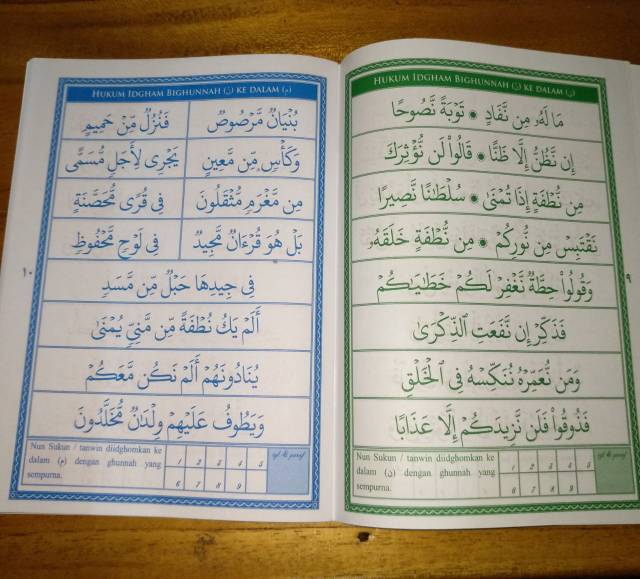 HUKUM IDGHAM BIGHUNNAH (ن) KE DALAM (ن)
مَا لَهُۥ مِن نَّفَادٍ * تَوْبَةً نَّصُوحًا
إِن نَّظُنُّ إِلَّا ظَنًّا * قَالُوا۟ لَن نُّؤْثِرَكَ
مِن نُّطْفَةٍ إِذَا تُمْنَىٰ * سُلْطَٰنًا نَّصِيرًا
نَقْتَبِسْ مِن نُّورِكُمْ * مِن نُّطْفَةٍ خَلَقَهُۥ
وَقُولُوا۟ حِطَّةٌ نَّغْفِرْ لَكُمْ خَطَٰيَٰكُمْ
فَذَكِّرْ إِن نَّفَعَتِ ٱلذِّكْرَىٰ
وَمَن نُّعَمِّرْهُ نُنَكِّسْهُ فِى ٱلْخَلْقِ
فَذُوقُوا۟ فَلَن نَّزِيدَكُمْ إِلَّا عَذَابًا
Nun Sukun / tanwin diidghomkan ke
dalam (ن) dengan ghunnah yang
sempurna.
1 2 3 4 5
6 7 8 9
٩
HUKUM IDGHAM BIGHUNNAH (ن) KE DALAM (م)
بُنْيَٰنٌ مَّرْصُوصٌ فَنُزُلٌ مِّنْ حَمِيمٍ
وَكَأْسٍ مِّن مَّعِينٍ يَجْرِى لِأَجَلٍ مُّسَمًّى
مِن مَّغْرَمٍ مُّثْقَلُونَ فِى قُرًى مُّحَصَّنَةٍ
بَلْ هُوَ قُرْءَانٌ مَّجِيدٌ فِى لَوْحٍ مَّحْفُوظٍ
فِى جِيدِهَا حَبْلٌ مِّن مَّسَدٍ
أَلَمْ يَكُ نُطْفَةً مِّن مَّنِىٍّ يُمْنَىٰ
يُنَادُونَهُمْ أَلَمْ نَكُن مَّعَكُمْ
وَيَطُوفُ عَلَيْهِمْ وِلْدَٰنٌ مُّخَلَّدُونَ
Nun Sukun / tanwin diidghomkan ke
dalam (م) dengan ghunnah yang
sempurna.
1 2 3 4 5
6 7 8 9
١٠